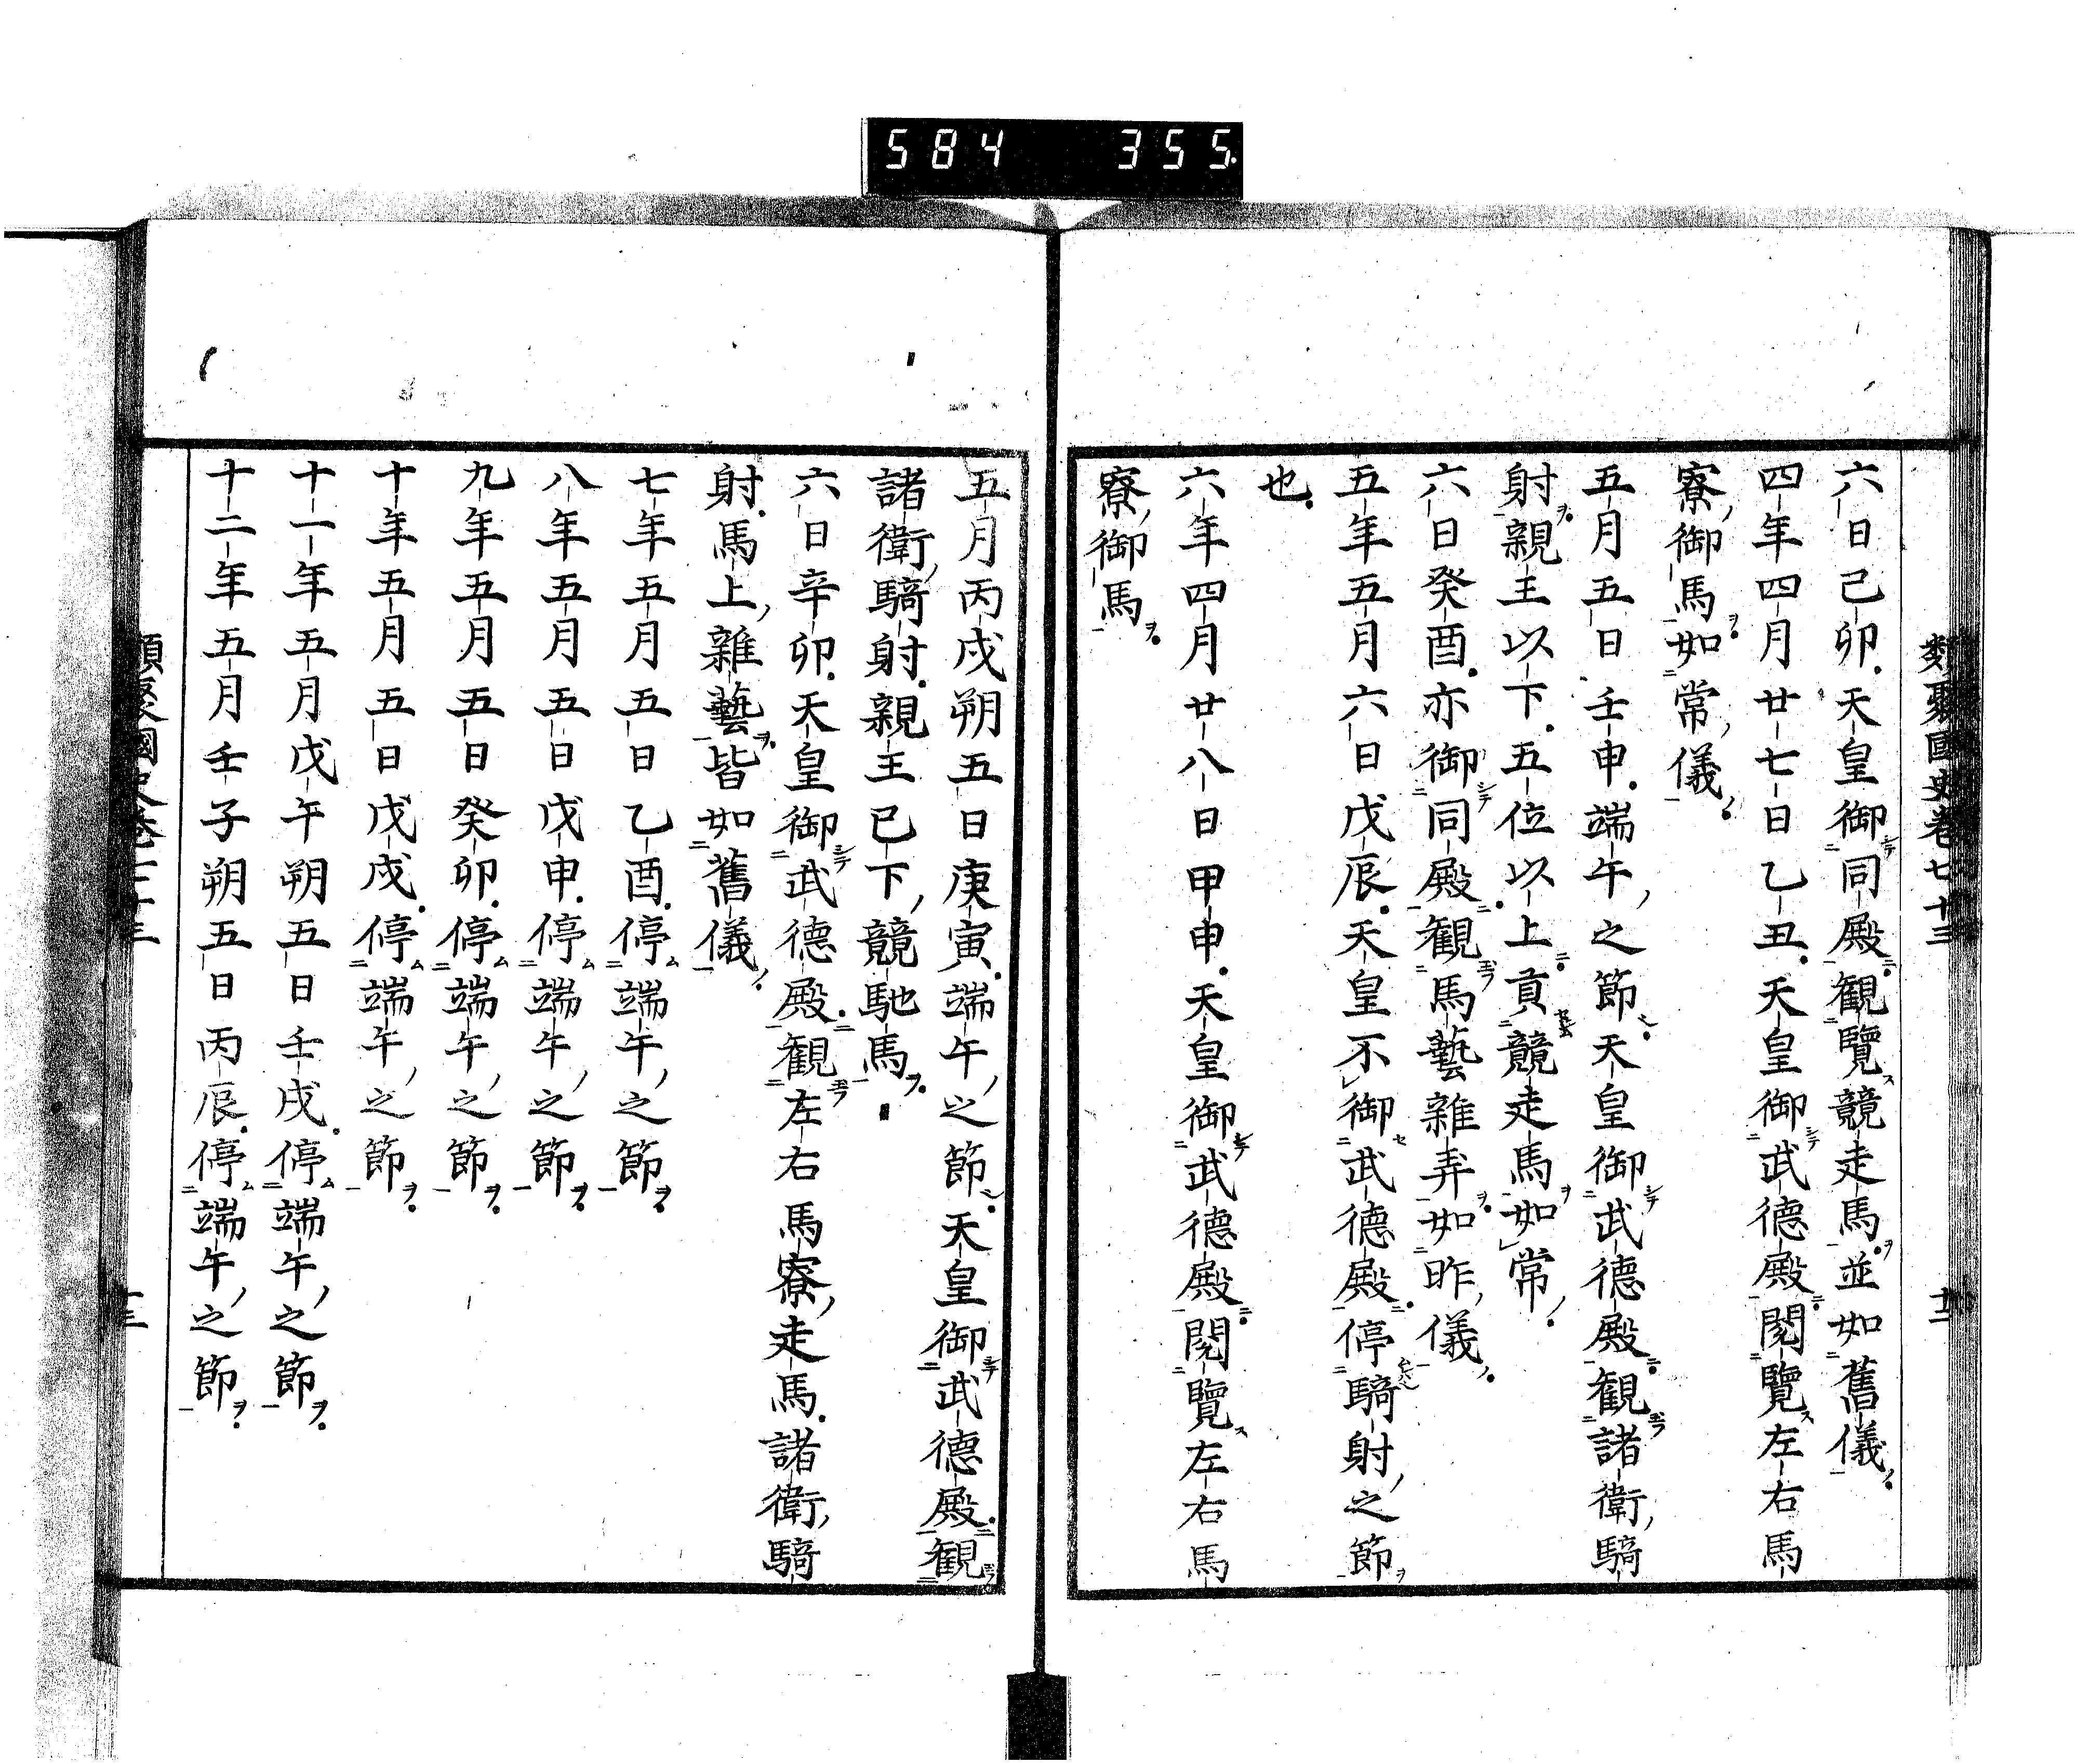 584 355
類聚國史卷七十三 十二
六日己卯天皇御同殿観覽競走馬並如舊儀
四年四月廿七日乙丑天皇御武德殿閲覽左右馬
寮御馬如常儀
五月五日壬申端午之節天皇御武德殿観諸衛騎
射親王以下五位以上貢競走馬如常
六日癸酉亦御同殿観馬藝雜弄如昨儀
五年五月六日戊辰天皇不御武德殿停騎射之節
也
六年四月廿八日甲申天皇御武德殿閲覽左右馬
寮御馬
五月丙戌朔五日庚寅端午之節天皇御武德殿観
諸衛騎射親王已下競馳馬
六日辛卯天皇御武德殿観左右馬寮走馬諸衛騎
射馬上雜藝皆如舊儀
七年五月五日乙酉停端午之節
八年五月五日戊申停端午之節
九年五月五日癸卯停端午之節
十年五月五日戊戌停端午之節
十一年五月戊午朔五日壬戌停端午之節
十二年五月壬子朔五日丙辰停端午之節
類聚國史卷七十三 十三